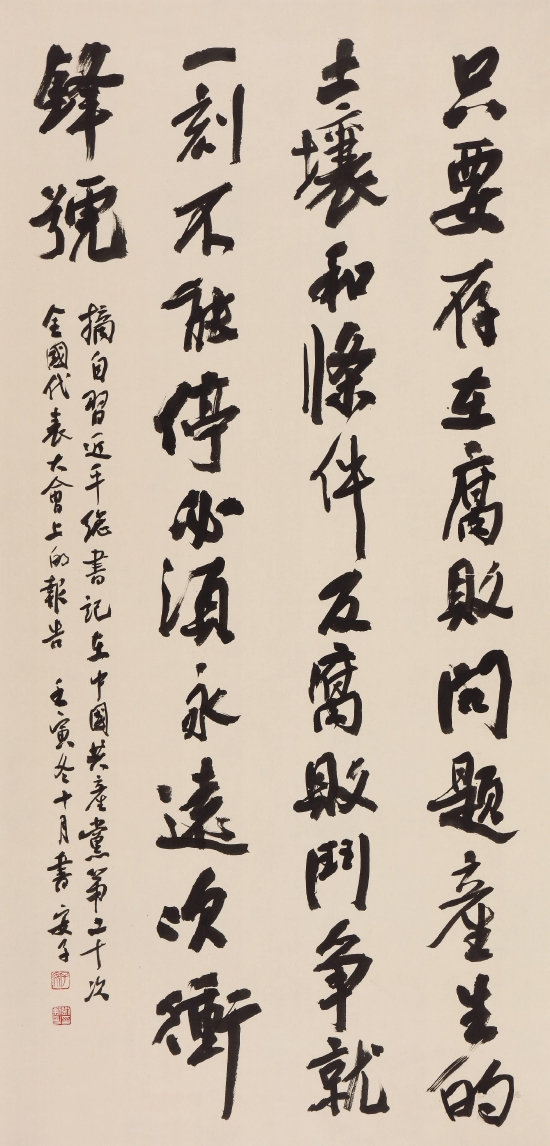 只要存在腐敗问题產生的
土壤和條件反腐敗鬥争就
一刻不能停必須永遠吹衝
鋒號
摘自習近平總書記在中國共產黨第二十次
全國代表大會上的報告 壬寅冬十月書